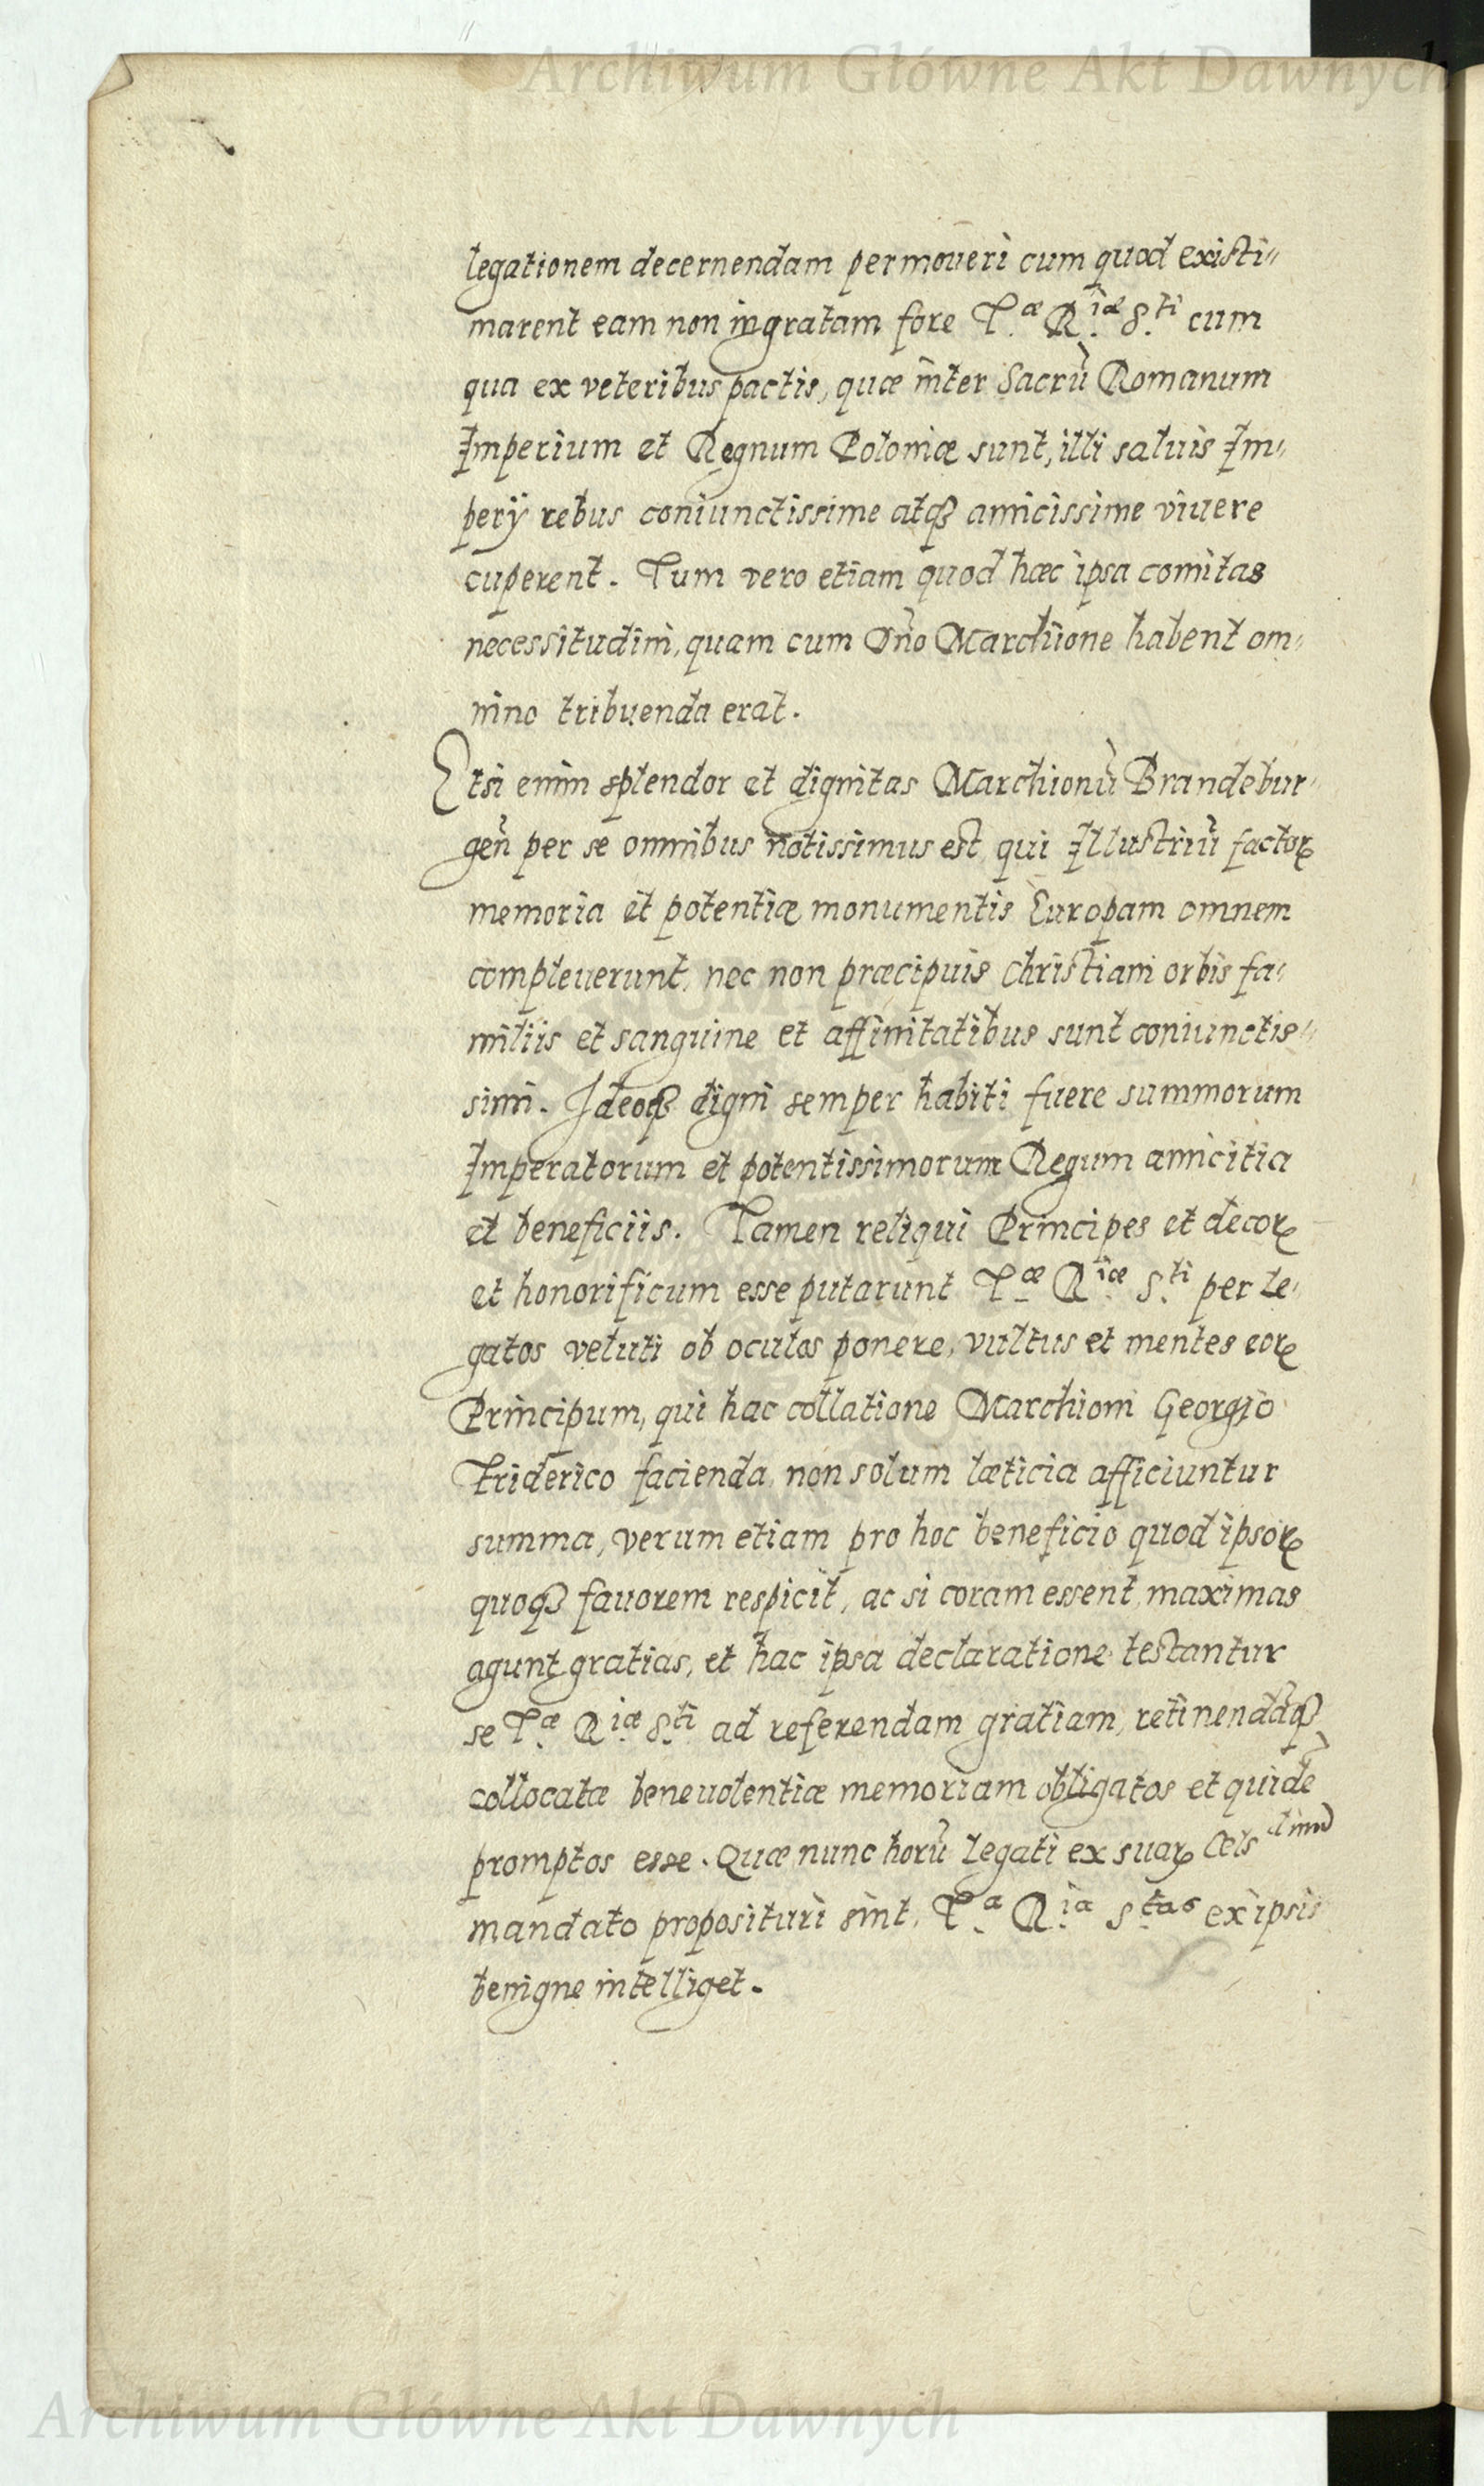 Archiwum Główne Akt Dawnych
legationem decernendam permoueri cum quod existi„
marent eam non ingratam fore T.æ R.iæ S.ti cum
qua ex veteribus pactis, quæ inter Sacrũ Romanum
Imperium et Regnum Poloniæ sunt, illi saluis Im„
perÿ rebus coniunctissime atqꝫ amicissime viuere
cuperent. Tum vero etiam quod hæc ipsa comitas
necessitudini, quam cum Dño Marchione habent om„
nino tribuenda erat.
Etsi enim splendor et dignitas Marchionũ Brandebur„
geñ per se omnibus notissimus est, qui Illustriũ factoꝝ
memoria et potentiæ monumentis Europam omnem
compleuerunt, nec non præcipuis Christiani orbis fa„
miliis et sanguine et affinitatibus sunt coniunctis„
simi. Ideoqꝫ digni semper habiti fuere summorum
Imperatorum et potentissimorum Regum amicitia
et beneficiis. Tamen reliqui Principes et decoꝝ
et honorificum esse putarunt T.æ R.iæ S.ti per le„
gatos veluti ob oculos ponere, vultus et mentes eoꝝ
Principum, qui hac collatione Marchioni Georgio
Friderico facienda, non solum læticia afficiuntur
summa, verum etiam pro hoc beneficio quod ipsoꝝ
quoqꝫ fauorem respicit, ac si coram essent, maximas
agunt gratias, et hac ipsa declaratione testantur
se T.æ R.iæ S.ti ad referendam gratiam, retinendãqꝫ
collocatæ beneuolentiæ memoriam obligatos et quidẽ
promptos esse. Quæ nunc horũ legati ex suaꝝ Cels
mandato proposituri sint, T.a R.ia S.tas ex ipsis
benigne intelliget.
Archiwum Główne Akt Dawnych